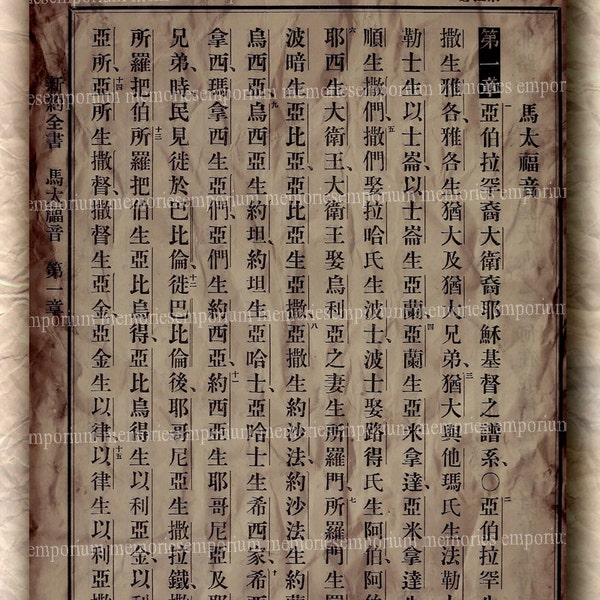 馬太福音
第一章 亞伯拉罕裔大衛裔耶穌基督之譜系〇亞伯拉罕生
撒生雅各雅各生猶大及猶大兄弟猶大與他瑪氏生法勒士
勒士生以士崙以士崙生亞蘭亞蘭生亞米拿達亞米拿達生
順生撒們撒們娶拉哈氏生波士波士娶路得氏生阿伯阿
耶西生大衛王大衛王娶烏利亞之妻生所羅門所羅門生
波暗生亞比亞亞比亞生亞撒亞撒生約沙法約沙法生約
烏西亞烏西亞生約坦約坦生亞哈士亞哈士生希西家希西
拿西瑪拿西生亞們亞們生約西亞約西亞生耶哥尼亞及耶
兄弟時民見徙於巴比倫徙巴比倫後耶哥尼亞生撒拉鐵撒
所羅把伯所羅把伯生亞比烏得亞比烏得生以利亞金以利
亞所亞所生撒督撒督生亞金亞金生以律以律生以利亞撒
新約全書 馬太福音 第一章
memories emporium